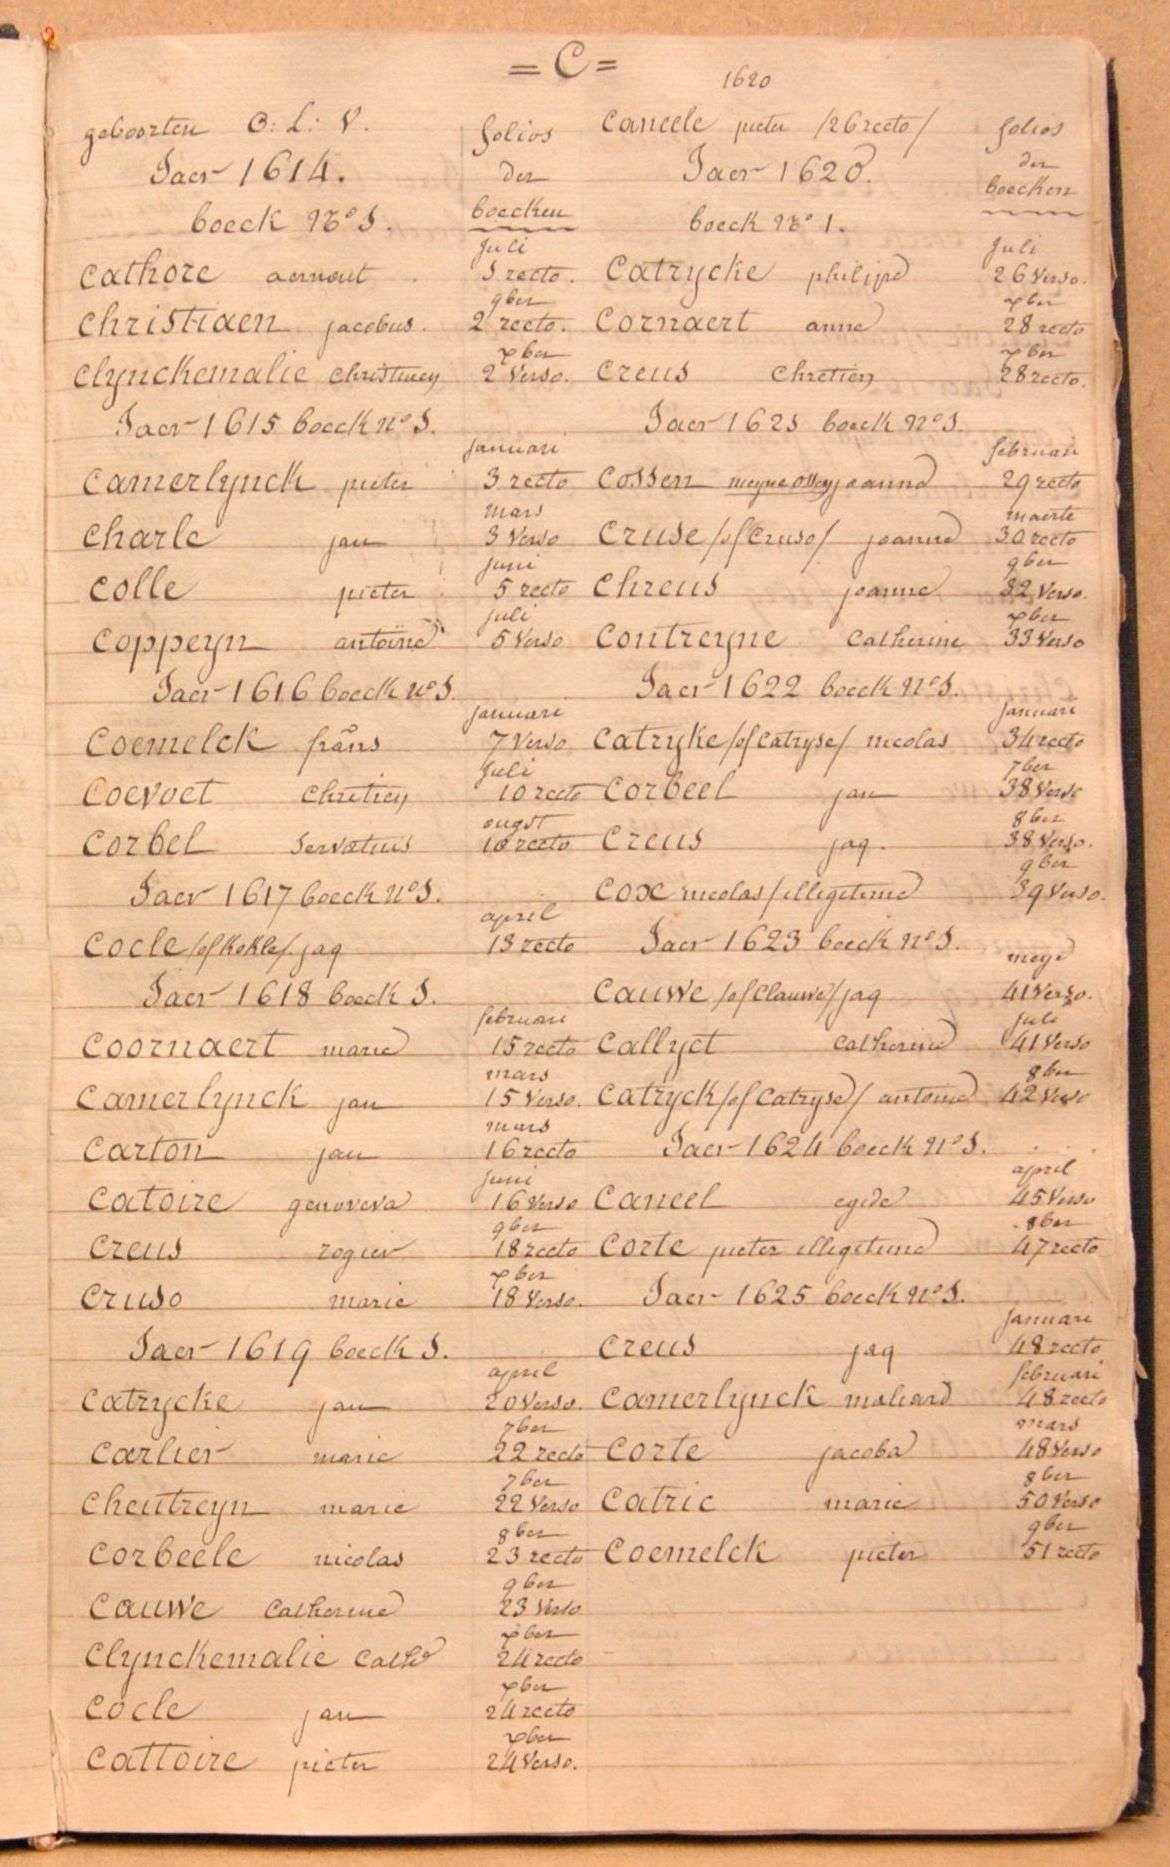 = C =
geboorten O: L: V.
folios
Jaer 1614.
der
boeck No 1.
boecken
juli
Cathore aernout 1 recto.
9ber
Christiaen jacobus. 2 recto.
xber
Clynckemalie Christiaen 2 Verso.
Jaer 1615 boeck No 1.
januari
Camerlynck pieter 3 recto
mars
Charle jan 3 Verso
juni
Colle pieter 5 recto
juli
Coppeyn antoine 5 Verso
Jaer 1616 boeck No 1.
januari
Coemelck frans 7 Verso
juli
Coevoet Chretien 10 recto
ougst
Corbel Servatius 10 recto
Jaer 1617 boeck No 1.
april
Cocle /of Kokle/ jaq 13 recto
Jaer 1618 boeck 1.
februari
Coornaert marie 15 recto
mars
Camerlynck jan 15 Verso.
mars
Carton jan 16 recto
juni
Catoire genoveva 16 Verso
9ber
Creus rogier 18 recto
xber
Cruso marie 18 Verso.
Jaer 1619 boeck 1.
april
Catrycke jan 20 Verso.
7ber
Carlier marie 22 recto
7ber
Cheutreyn marie 22 Verso
8ber
Corbeele nicolas 23 recto
9ber
Cauwe Catherine 23 Verso
xber
Clynckemalie Cathe 24 recto
xber
Cocle jan 24 recto
xber
Cattoire pieter 24 Verso.
1620
Caneele pieter /26 recto/
folios
Jaer 1620.
der
boecken
boeck No 1.
juli
Catrycke philippe 26 Verso.
xber
Cornaert anne 28 recto
xber
Creus Chretien 28 recto.
Jaer 1621 boeck No 1.
februari
Cossen joanne 29 recto
maerte
Cruse /of Cruso/ joanne 30 recto
9ber
Chreus joanne 32 Verso.
xber
Contreyne Catherine 33 Verso
Jaer 1622 boeck No 1.
januari
Catryke /of Catryse/ nicolas 34 recto
7ber
Corbeel jan 38 Verso
8ber
Creus jaq. 38 Verso.
9ber
Cox nicolas /illegitime 39 Verso.
Jaer 1623 boeck No 1.
meye
Cauwe /of Clauwe/ jaq 41 Verso.
juli
Callyet Catherine 41 Verso
8ber
Catryck /of Catryse/ antoine 42 Verso
Jaer 1624 boeck No 1.
april
Caneel egide 45 Verso
8ber
Corte pieter illegitime 47 recto
Jaer 1625 boeck No 1.
januari
Creus jaq 48 recto
februari
Camerlynck maliard 48 recto
mars
Corte jacoba 48 Verso
8ber
Catric marie 50 Verso
9ber
Coemelck pieter 51 recto